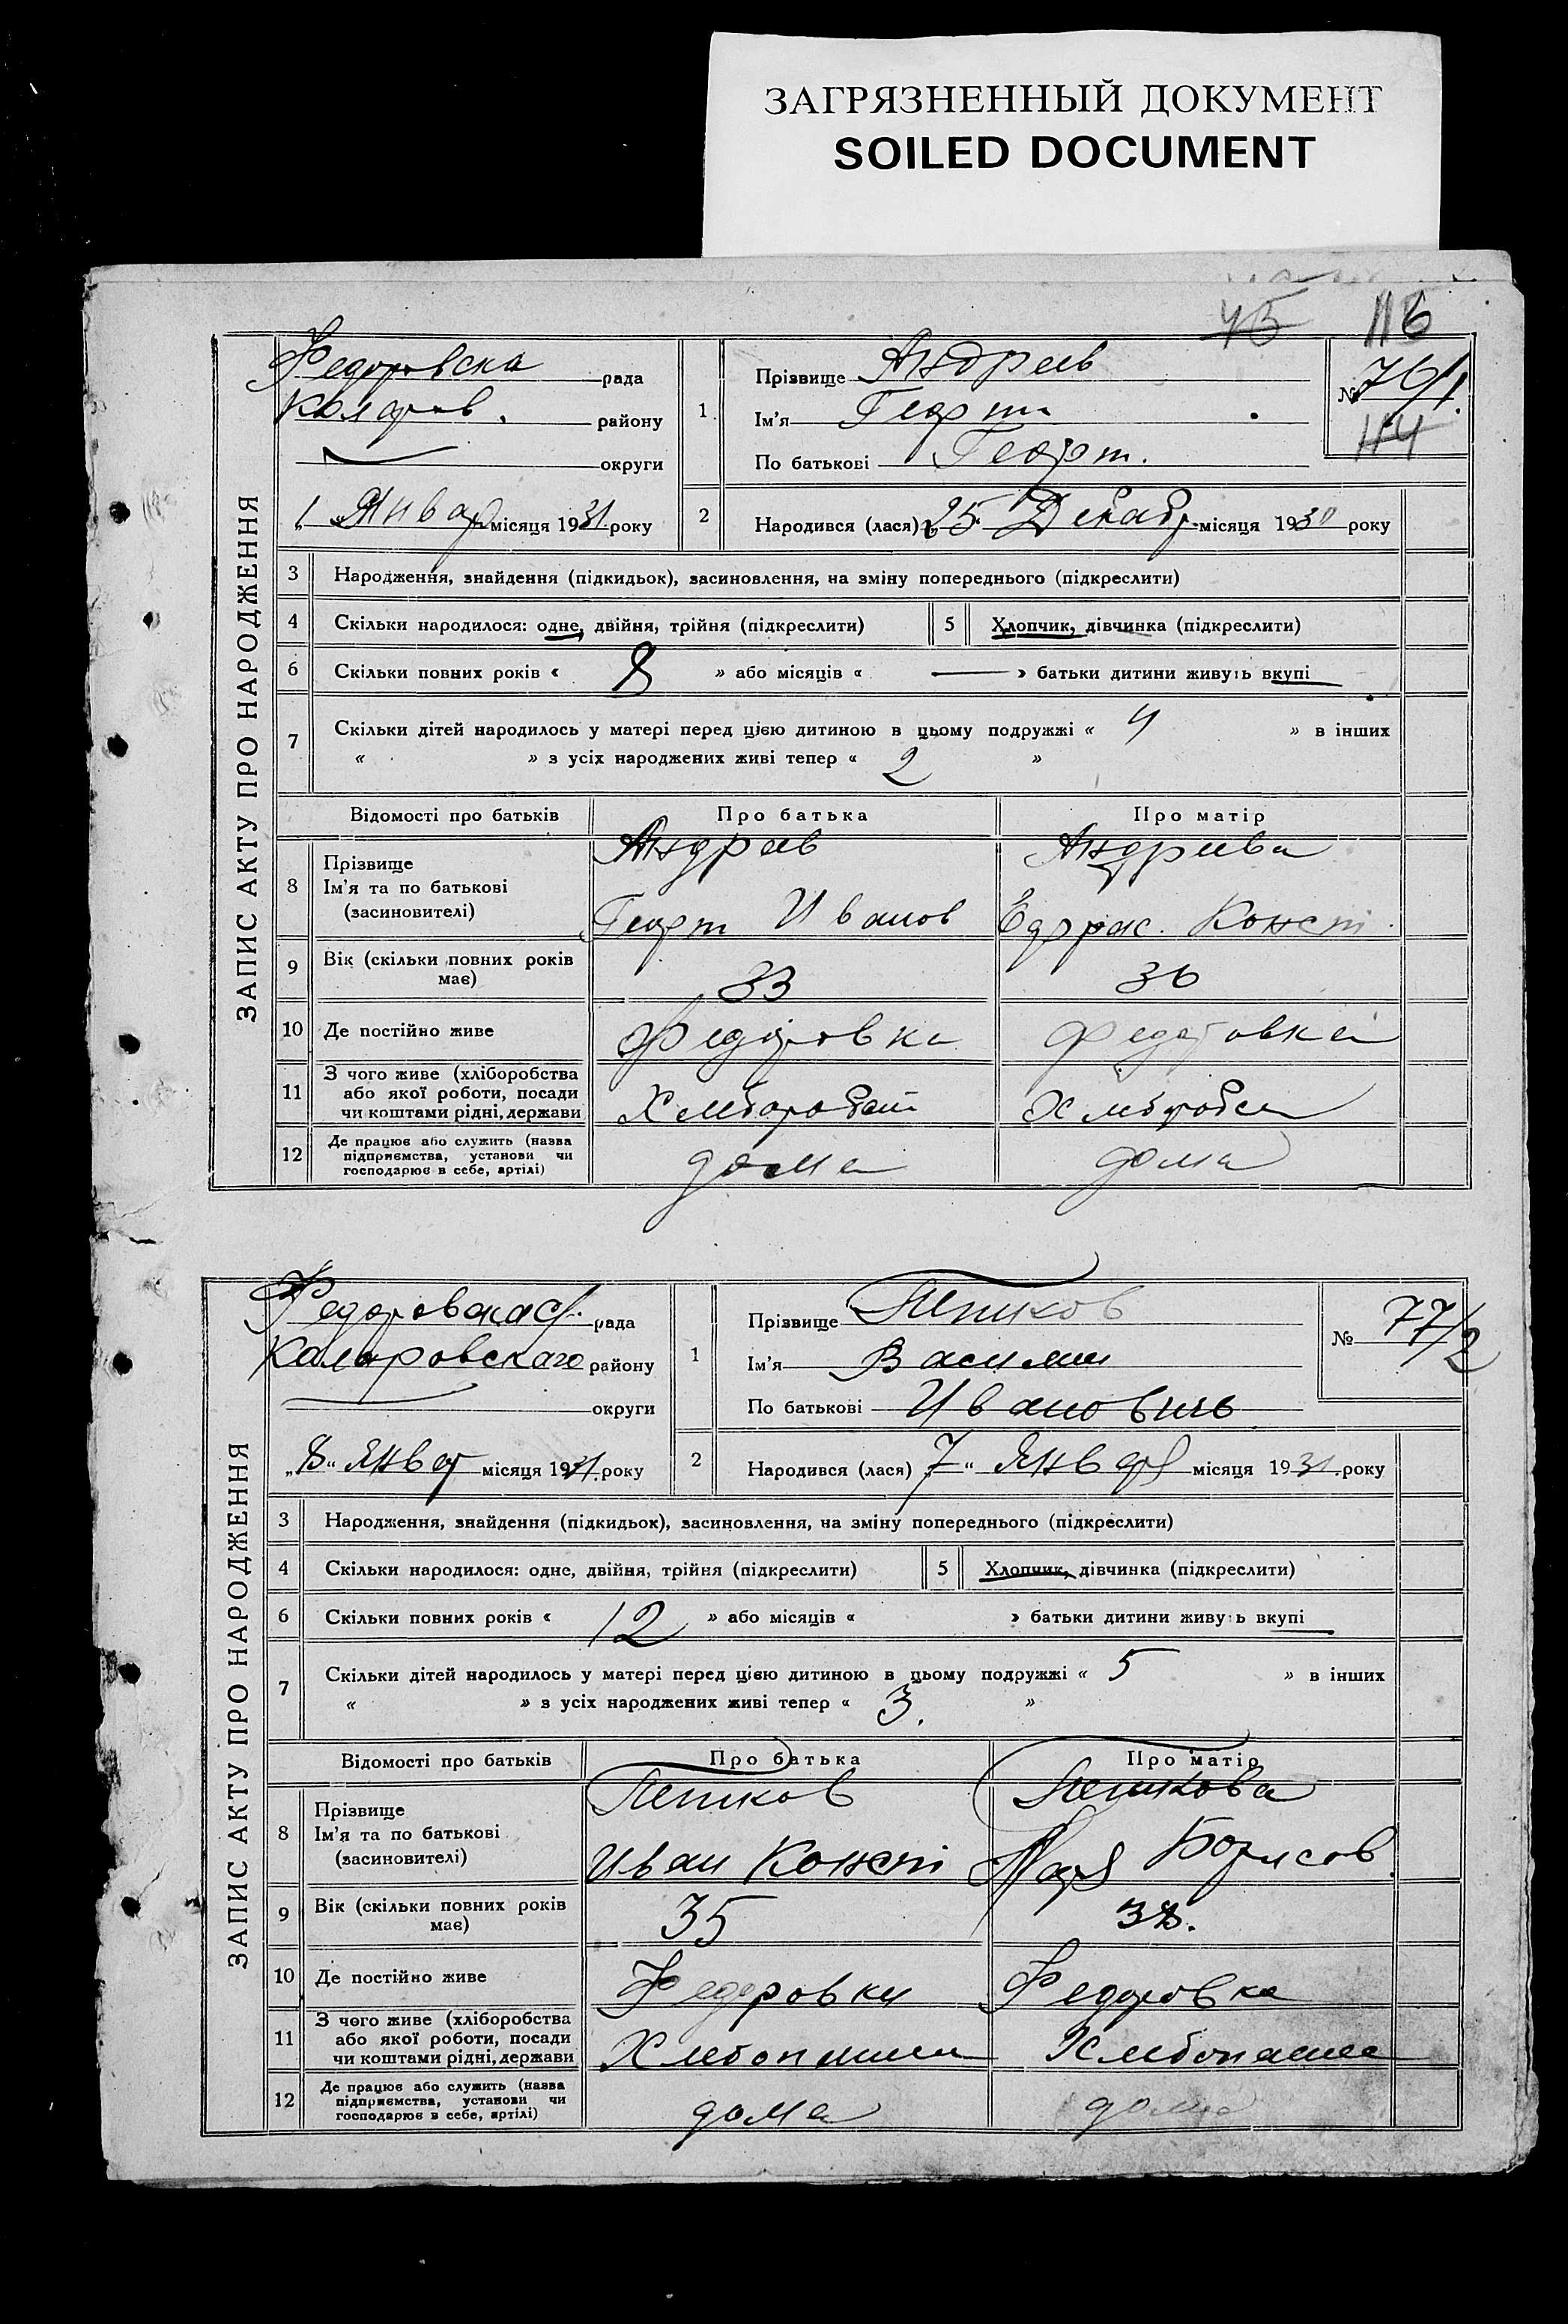 ЗАГРЯЗНЕННЫЙ ДОКУМЕНТ
SOILED DOCUMENT
45 116
ЗАПИС АКТУ ПРО НАРОДЖЕННЯ
Федоровска рада
Коляров. району
округи
„1 Январ місяця 1931 року
1 Прізвище Андреев
Ім'я Георги
По батькові Георг.
№ 76/1.
114
2 Народився (лася) „25 Декабр. місяця 1930 року
3 Народження, знайдення (підкидьок), засиновлення, на зміну попереднього (підкреслити)
4 Скільки народилося: одне, двійня, трійня (підкреслити) 5 Хлопчик, дівчинка (підкреслити)
6 Скільки повних років « 8 » або місяців « — » батьки дитини живуть вкупі
7 Скільки дітей народилось у матері перед цією дитиною в цьому подружжі « 4 » в інших
« » з усіх народжених живі тепер « 2 »
Відомості про батьків Про батька Про матір
8 Прізвище Андреев Андреева
Ім'я та по батькові
(засиновителі) Георг Иванов Конст.
9 Вік (скільки повних років
має) 33 36
10 Де постійно живе Федоровка Федоровка
11 З чого живе (хліборобства
або якої роботи, посади
чи коштами рідні, держави
12 Де працює або служить (назва
підприємства, установи чи
господарює в себе, артілі) дома дома
ЗАПИС АКТУ ПРО НАРОДЖЕННЯ
Федоровская рада
Коляровскаго району
округи
„8" Январ місяця 1931 року
1 Прізвище Петков
Ім'я Василий
По батькові Ивановичь
№ 77/2
2 Народився (лася) „7" Январ місяця 1931 року
3 Народження, знайдення (підкидьок), засиновлення, на зміну попереднього (підкреслити)
4 Скільки народилося: одне, двійня, трійня (підкреслити) 5 Хлопчик, дівчинка (підкреслити)
6 Скільки повних років « 12 » або місяців « » батьки дитини живуть вкупі
7 Скільки дітей народилось у матері перед цією дитиною в цьому подружжі « 5 » в інших
« » з усіх народжених живі тепер « 3. »
Відомості про батьків Про батька Про матір
8 Прізвище Петков Петкова
Ім'я та по батькові
(засиновителі) Иван Конст Борисов
9 Вік (скільки повних років
має) 35
10 Де постійно живе Федоровки Федоровка
11 З чого живе (хліборобства
або якої роботи, посади
чи коштами рідні, держави
12 Де працює або служить (назва
підприємства, установи чи
господарює в себе, артілі) дома дома